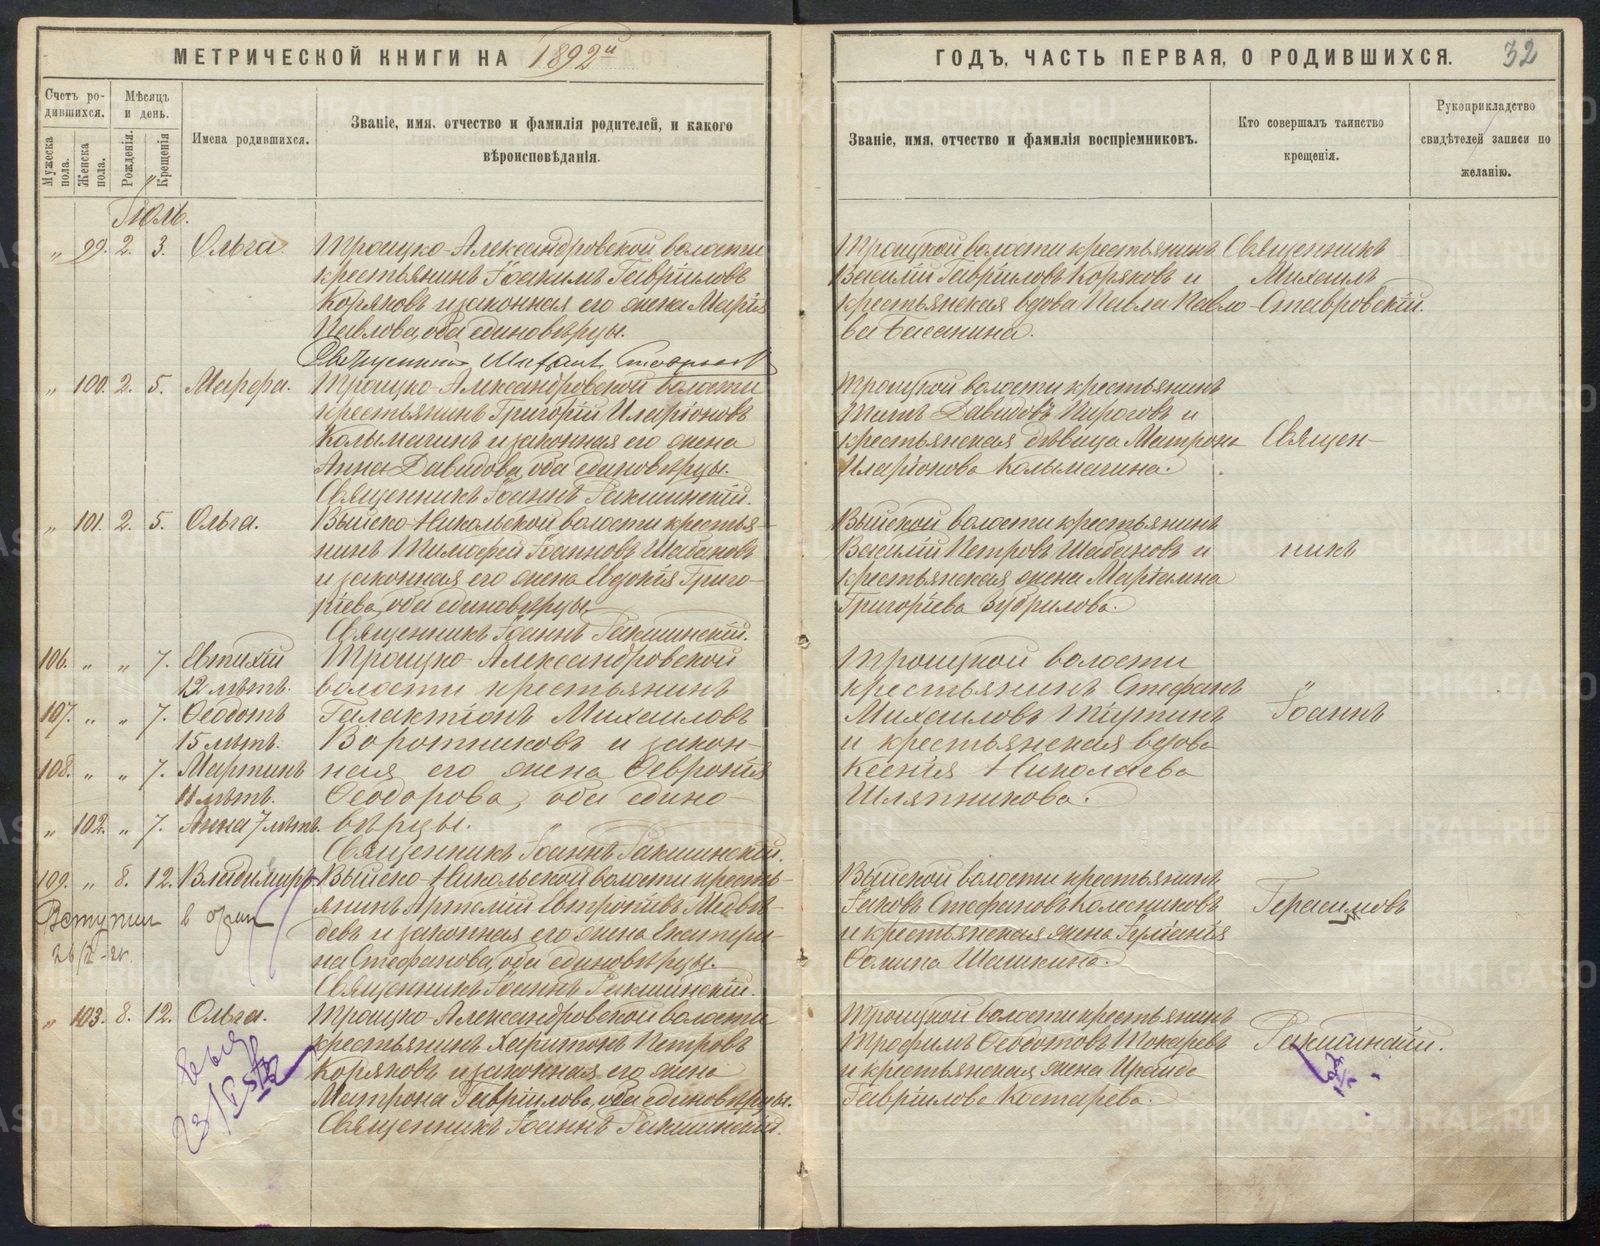 МЕТРИЧЕСКОЙ КНИГИ НА 1892й
Счетъ родившихся.
Мужеска пола.
Женска пола.
Мѣсяцъ и день.
Рожденія.
Крещенія
Имена родившихся.
Званіе, имя, отчество и фамилія родителей, и какого
вѣроисповѣданія.
Іюль.
„ 99. 2. 3. Ольга. Троицко-Александровской волости
крестьянинъ Іоакимъ Гавріиловъ
Коряковъ и законная его жена Марія
Павлова, оба единовѣрцы.
Священник Михаил
„ 100. 2. 5. Марфа. Троицко-Александровской волости
крестьянинъ Григорій Иларіоновъ
Колымагинъ и законная его жена
Анна Давидова, оба единовѣрцы.
Священникъ Іоаннъ
„ 101. 2. 5. Ольга. Выйско-Никольской волости крестья-
нинъ Тимофей Іоанновъ Шабановъ
и законная его жена Евдокія Григо-
ріева, оба единовѣрцы.
Священникъ Іоаннъ
106. „ „ 7. Евтихій Троицко-Александровской
12 лѣтъ. волости крестьянинъ
107. „ „ 7. Ѳеодотъ Галактіонъ Михаиловъ
15 лѣтъ. Воротниковъ и закон-
108. „ „ 7. Мартинъ ная его жена Ѳевронія
11 лѣтъ. Ѳеодорова, оба едино-
„ 102. „ 7. Анна 7 лѣтъ. вѣрцы.
Священникъ Іоаннъ
109. „ 8. 12. Владимиръ Выйско-Никольской волости кресть-
Вступил в брак янинъ Артемій Евтропіевъ Медвѣ-
девъ и законная его жена Екатери-
на Стефанова, оба единовѣрцы.
Священникъ Іоаннъ
„ 103. 8. 12. Ольга. Троицко-Александровской волости
крестьянинъ Харитонъ Петровъ
Коряковъ и законная его жена
Матрона Гавріилова, оба единовѣрцы.
Священникъ Іоаннъ
ГОДЪ, ЧАСТЬ ПЕРВАЯ, О РОДИВШИХСЯ.
32
Званіе, имя, отчество и фамилія воспріемниковъ.
Кто совершалъ таинство
крещенія.
Рукоприкладство
свидѣтелей записи по
желанію.
Троицкой волости крестьянинъ Священникъ
Василій Гавріиловъ Коряковъ и Михаилъ
крестьянская вдова Павла Павло- Ставровскій.
ва Басанина.
Троицкой волости крестьянинъ
Титъ Давидовъ Пироговъ и
крестьянская дѣвица Матрона Священ-
Иларіонова Колымагина.
Выйской волости крестьянинъ
Василій Петровъ Шабановъ и никъ
крестьянская жена Маріамна
Григоріева Зубрилова.
Троицкой волости
крестьянинъ Стефанъ
Михаиловъ Тиртинъ Іоаннъ
и крестьянская вдова
Ксенія Николаева
Шляпникова.
Выйской волости крестьянинъ
Іаковъ Стефановъ Колесниковъ Герасимовъ
и крестьянская жена
Ѳомина Шашкина.
Троицкой волости крестьянинъ
Трофимъ Ѳеодотовъ Токаревъ
и крестьянская жена Ираида
Гавріилова Костарева.
METRIKI.GASO-URAL.RU